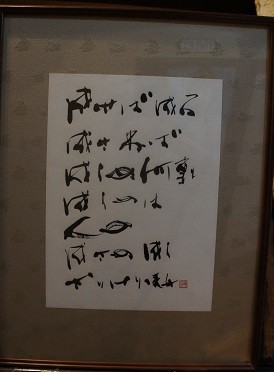 成せば成る
成さねば
成らぬ何事も
成らぬは
人の
成さぬ
けり